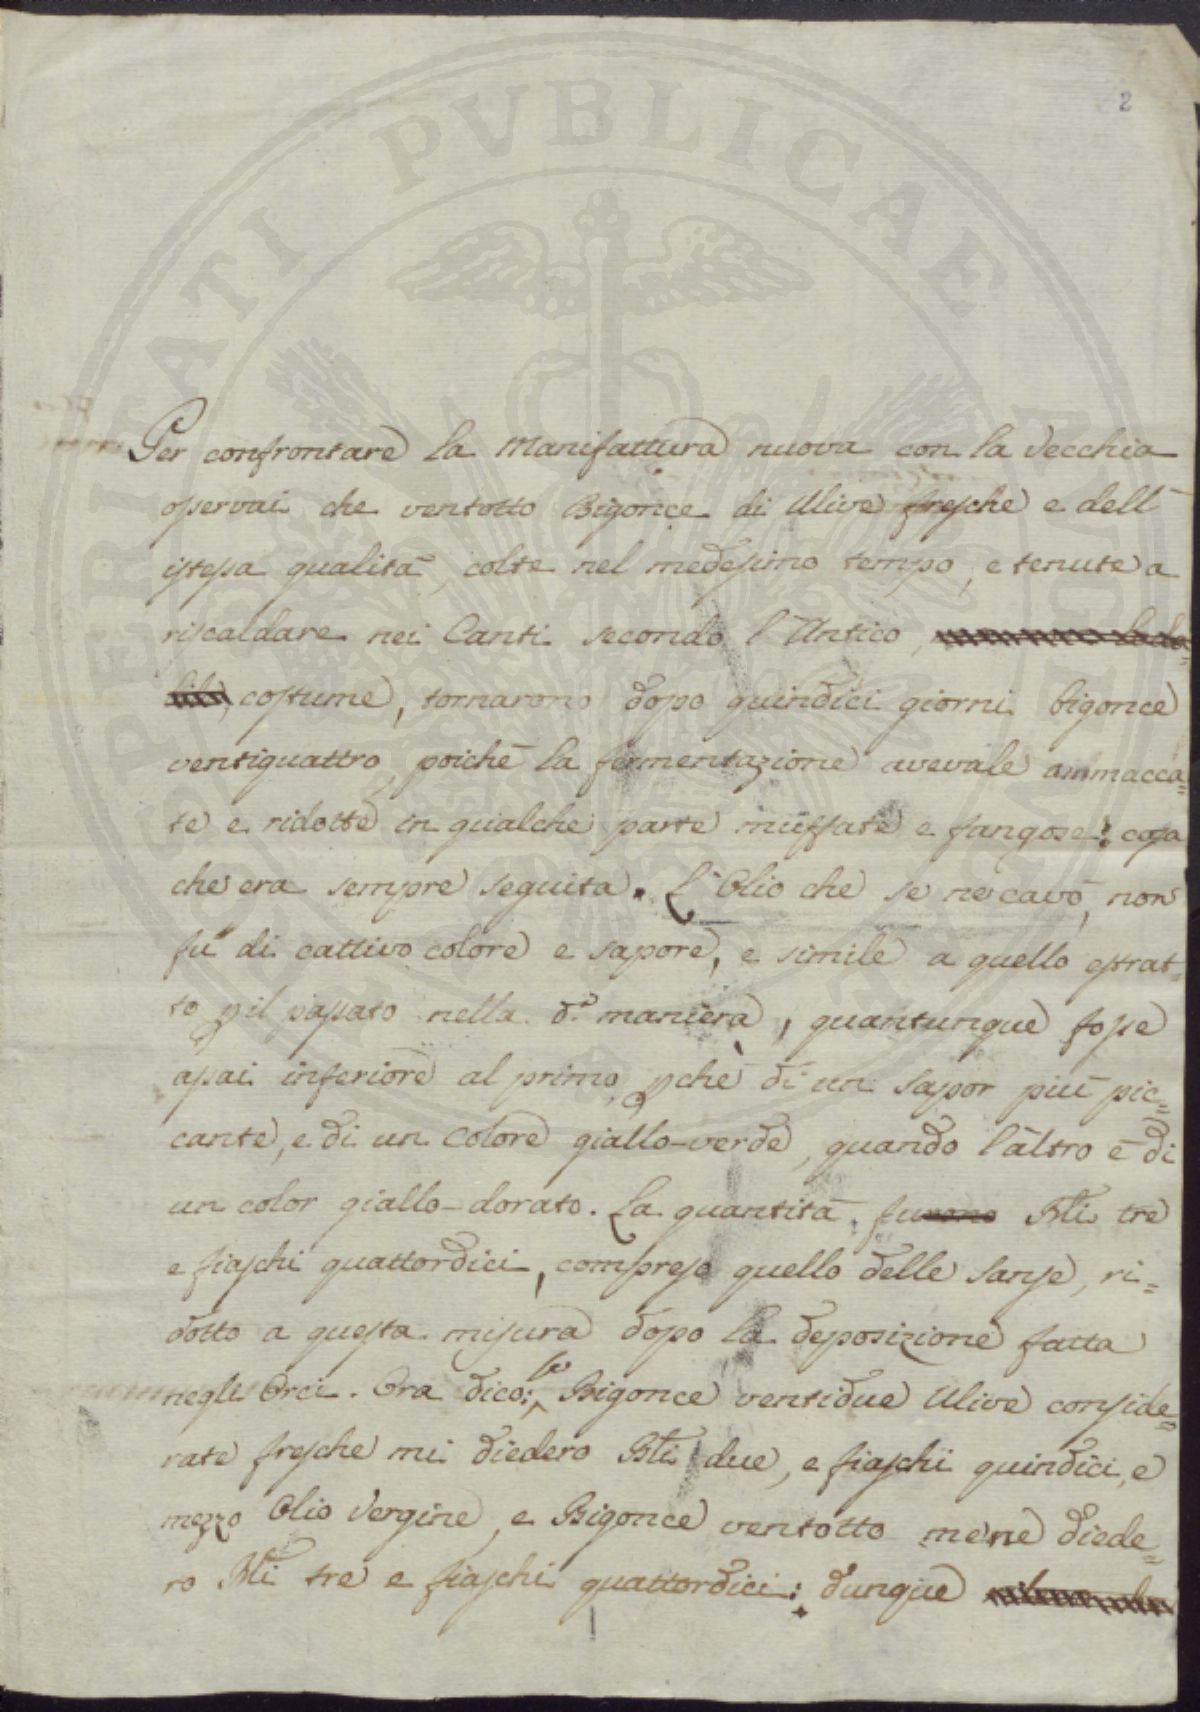 2
Per confrontare la Manifattura nuova con la Vecchia
osservai che ventotto Bigonce di Ulive fresche e dell'
istessa qualità, colte nel medesimo tempo, e tenute a
riscaldare nei Canti secondo l'Antico,
costume, tornarono dopo quindici giorni bigonce
ventiquattro, poichè la fermentazione avevale ammacca=
te e ridotte in qualche parte muffate e fangose: cosa
che era sempre seguita. L'Olio che se ne cavò, non
fù di cattivo colore e sapore, e simile a quello estrat=
to p il passato nella d.ª maniera, quantunque fosse
assai inferiore al primo, pchè di un sapor più pic=
cante, e di un Colore giallo-verde, quando l'altro è di
un color giallo-dorato. La quantità, furono Bli tre
e fiaschi quattordici, compreso quello delle Sanse, ri=
dotto a questa misura dopo la deposizione fatta
negli Orci. Ora dico: se Bigonce ventidue Ulive conside=
rate fresche mi diedero Bli due, e fiaschi quindici, e
mezzo Olio Vergine, e Bigonce ventotto mene diede=
ro Bli tre e fiaschi quattordici: dunque
PERITATI PVBLICAE